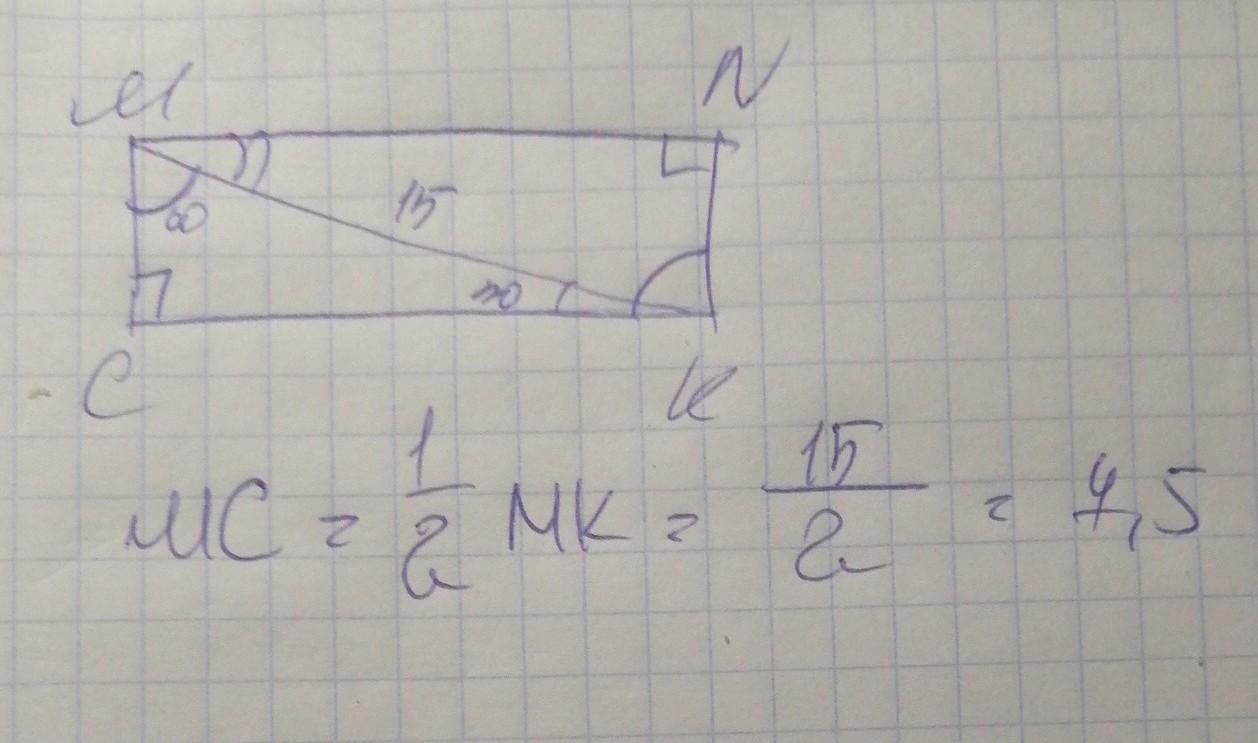 M N
60 15
30
C K
MC = 1/2 MK = 15/2 = 7,5